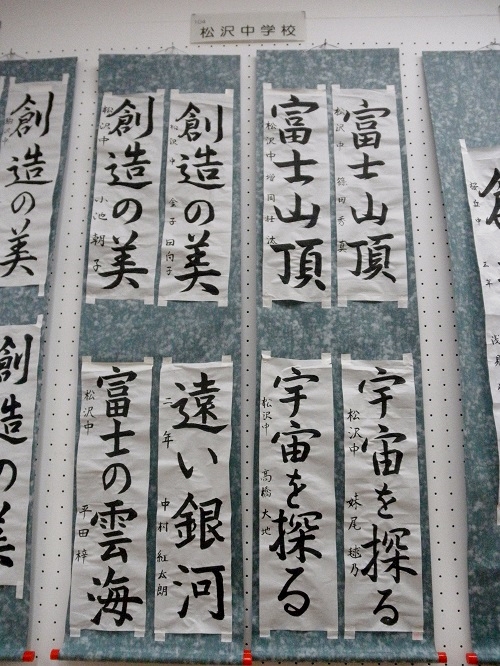 松沢中学校
富士山頂
松沢中
富士山頂
松沢中
創造の美
松沢中 金子
創造の美
松沢中 小池 朝子
創造の美
宇宙を探る
松沢中 妹尾 毬乃
宇宙を探る
松沢中 高橋 大地
遠い銀河
二年 中村 紅太朗
富士の雲海
松沢中 平田 梓
創造の美